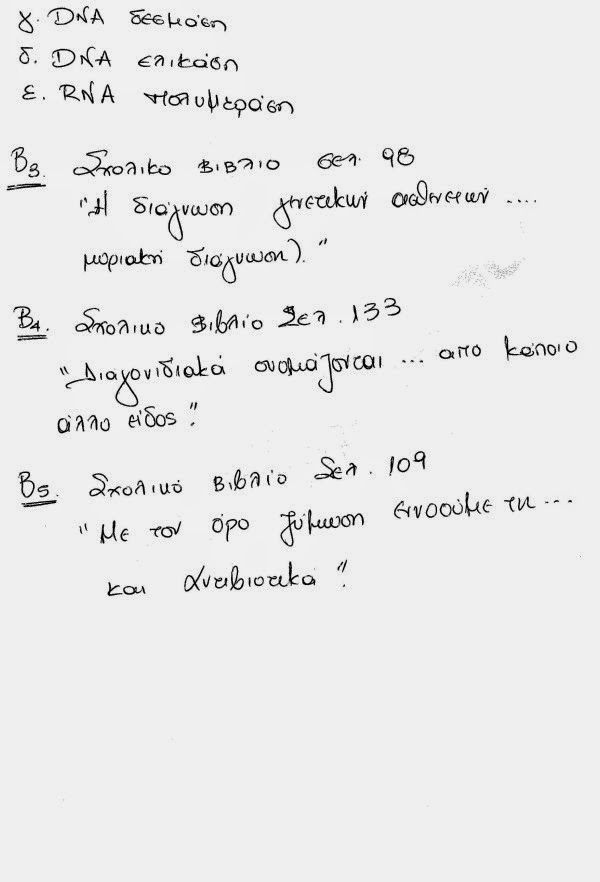 γ. DNA δεσμάση
δ. DNA ελικάση
ε. RNA πολυμεράση
Β3. Σχολικό βιβλίο σελ. 98
"Η διάγνωση γενετικών ασθενειών ....
μοριακή διάγνωση)."
Β4. Σχολικό Βιβλίο Σελ. 133
"Διαγονιδιακά ονομάζονται ... απο κάποιο
άλλο είδος".
Β5. Σχολικό Βιβλίο Σελ. 109
"Με τον όρο ζύμωση εννοούμε τη ...
και αντιβιοτικά".